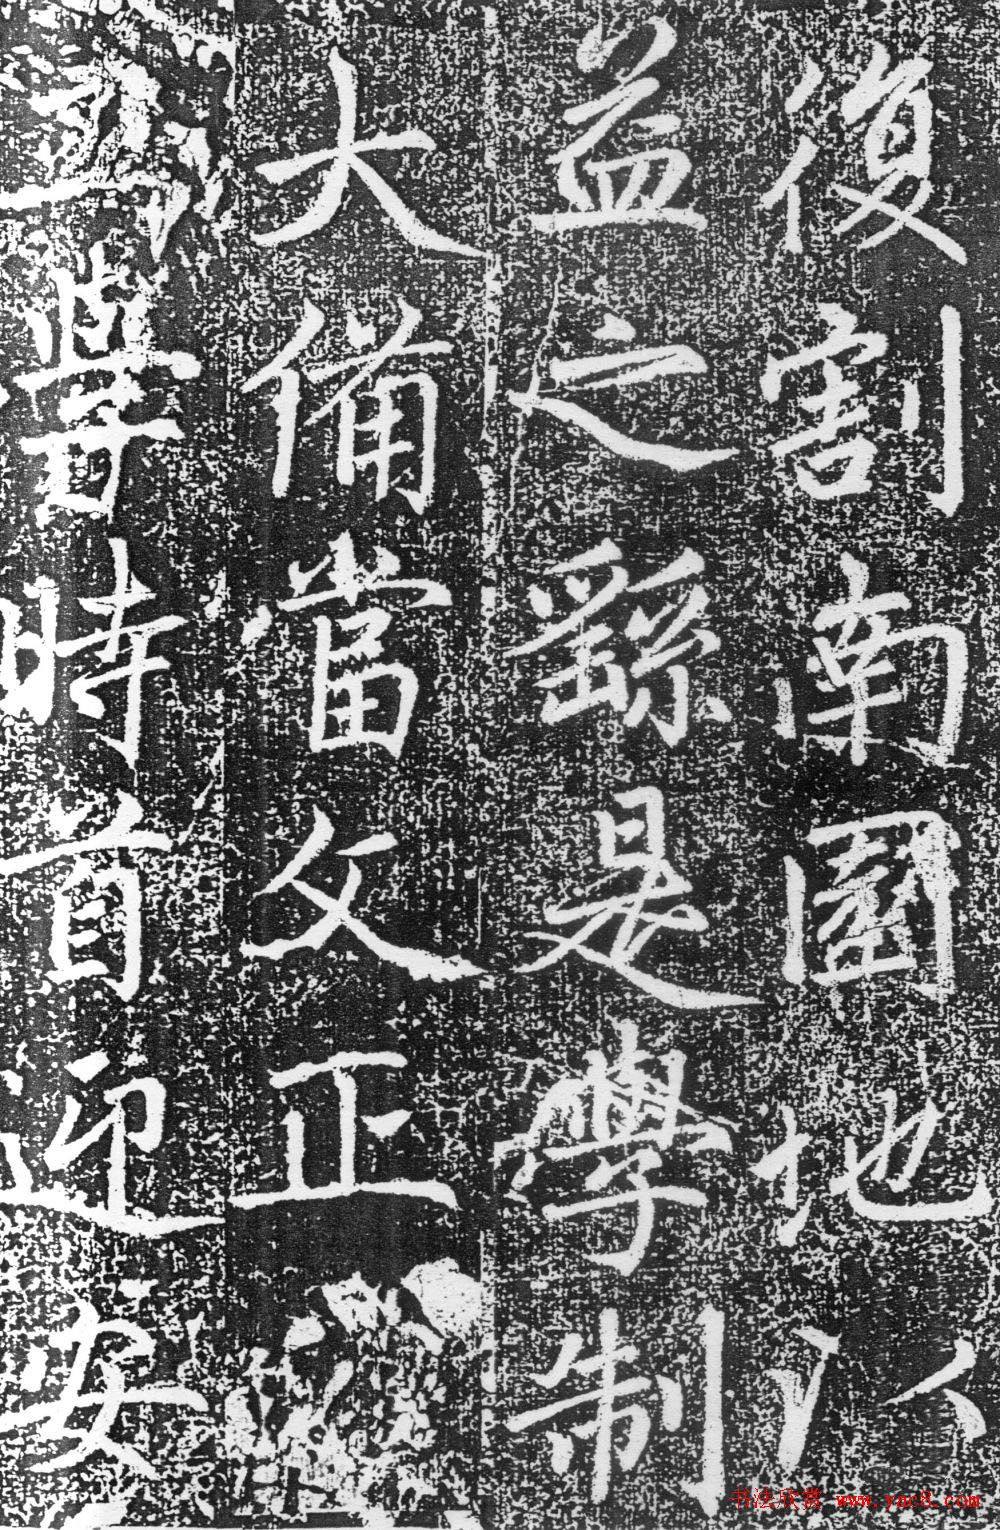 復割南園地以
益之繇是學制
大備當文正
學時首迎安
书法欣赏 www.yac8.com